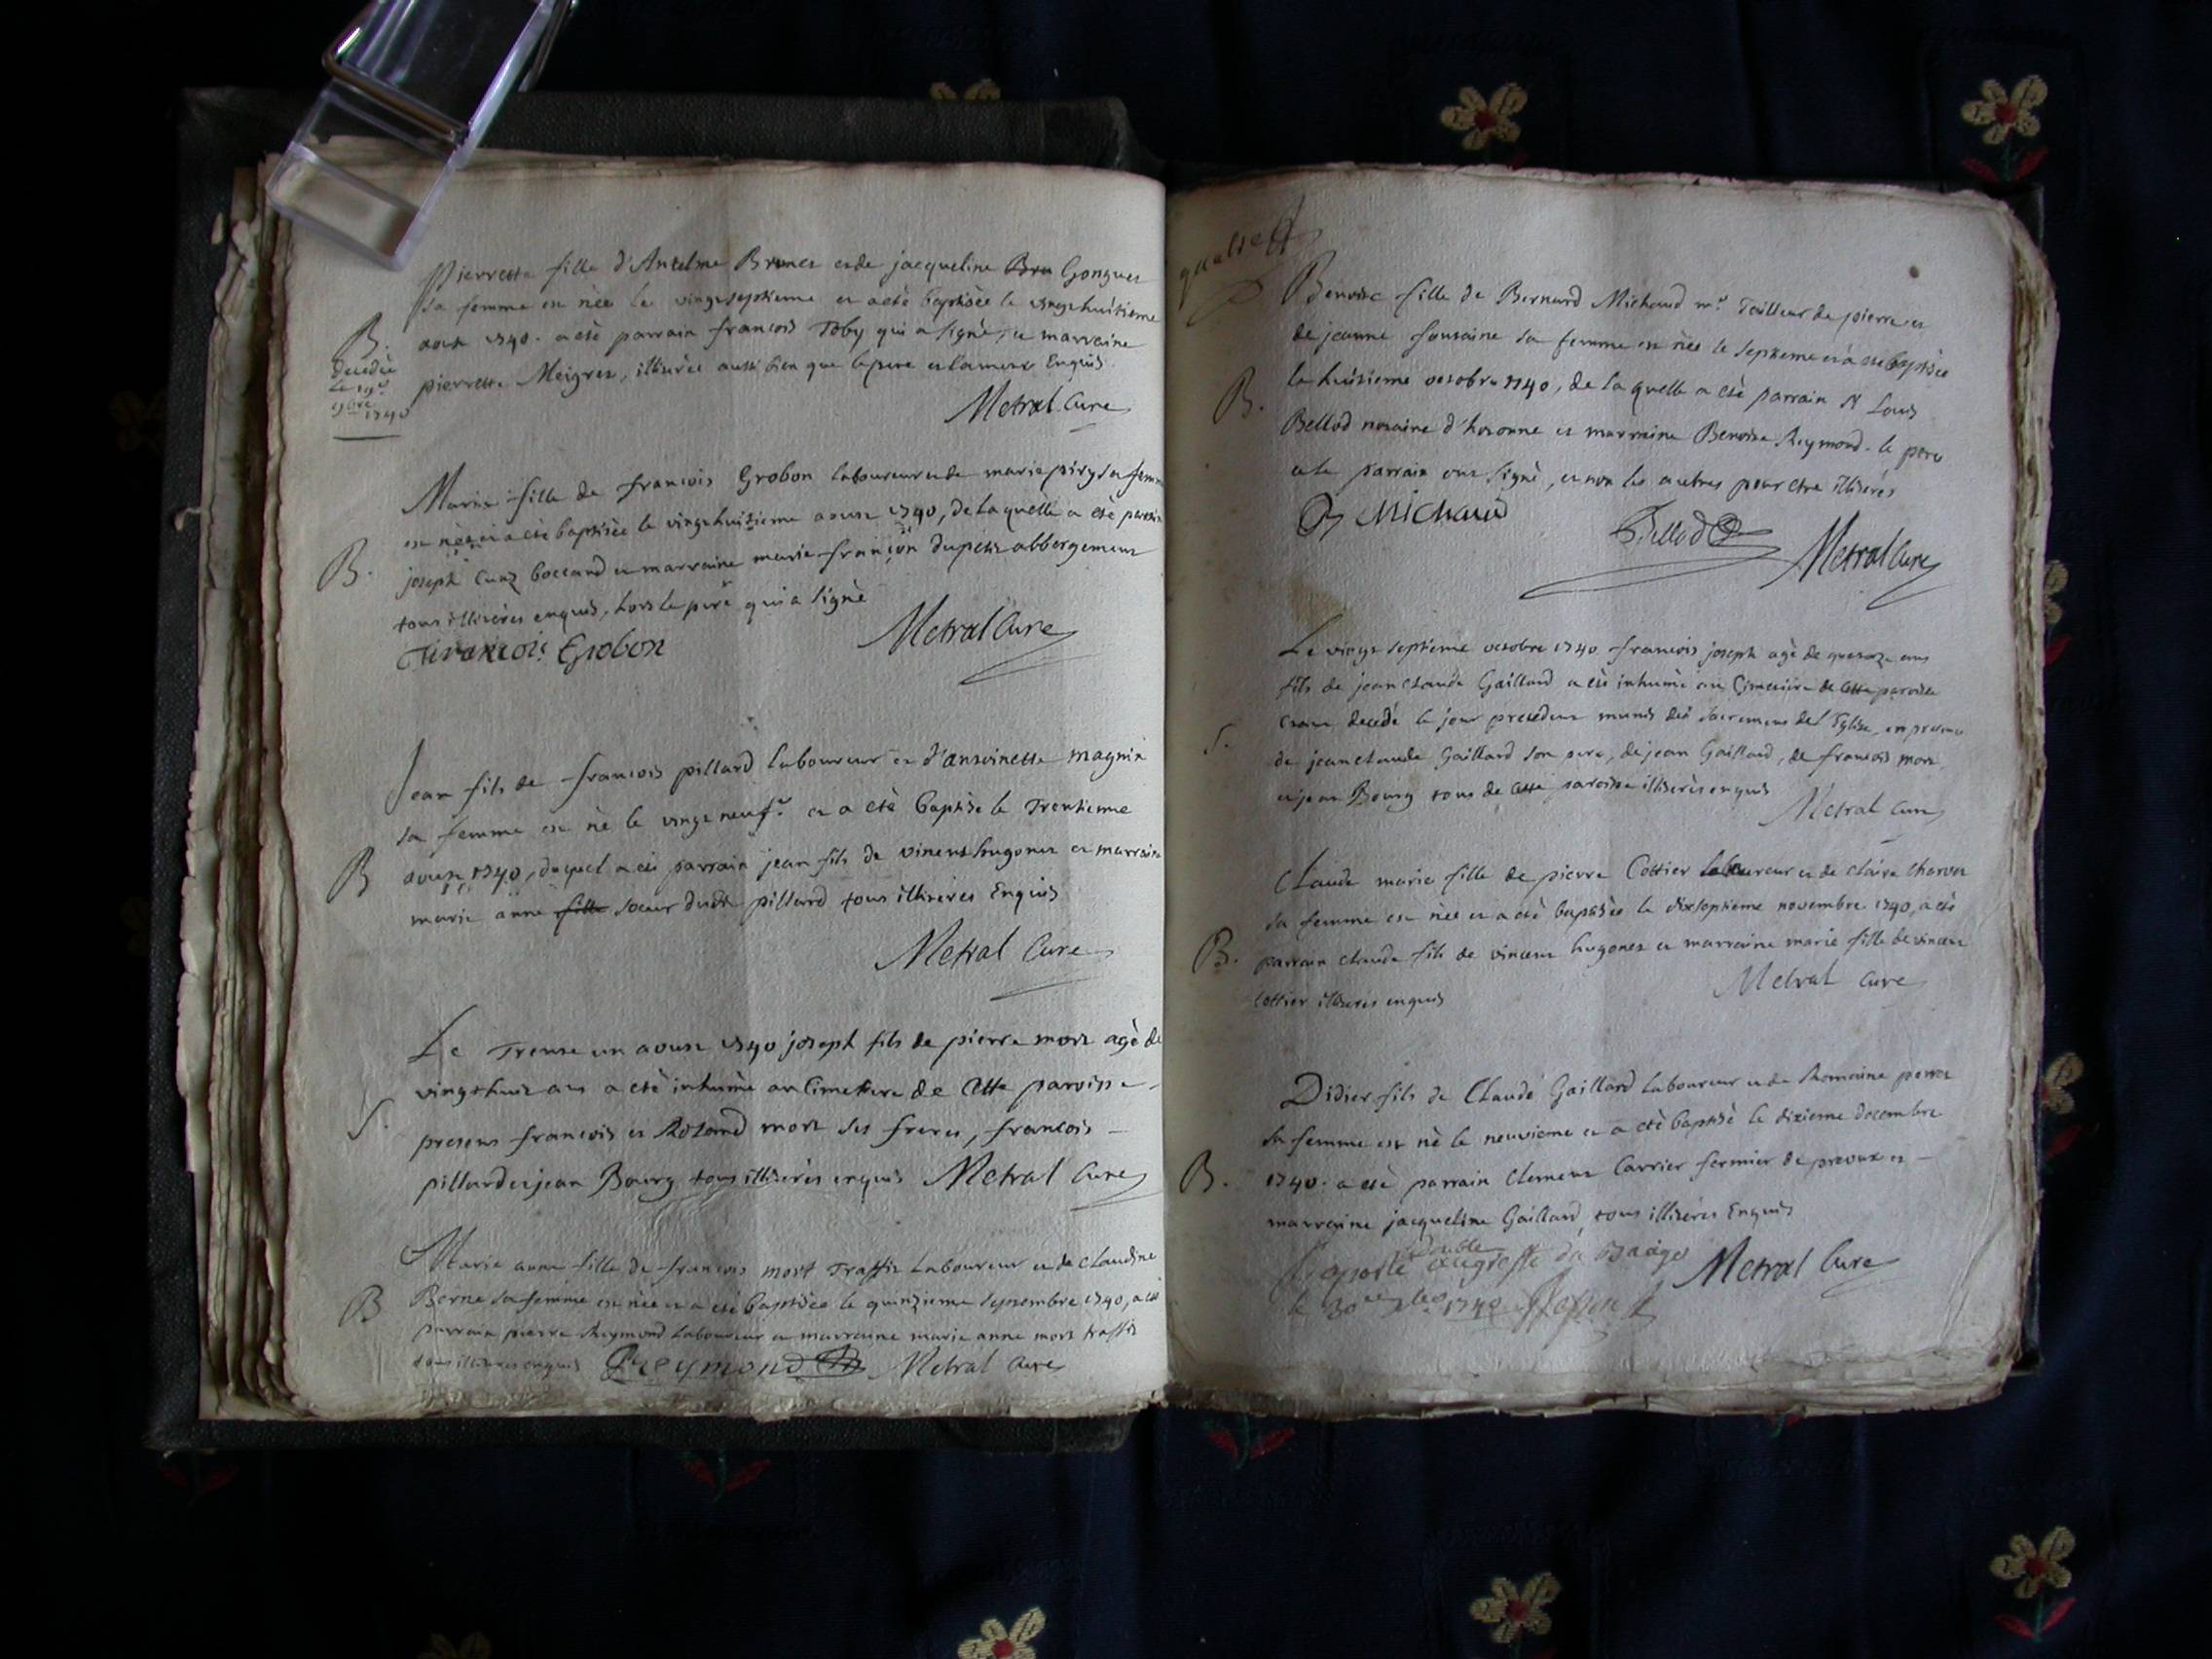 Pierrette fille d'Antelme Brunet et de jacqueline Bru Gonguet
sa femme est née le vingtseptieme et a eté baptisée le vingthuitieme
aoust 1740. a eté parrain francois Toby qui a signé, et marraine
pierrette Meigret, illiterés aussi bien que le pere et la mere Enquis
Metral Curé
B.
decedée
le 19e
9bre
1740
Marie fille de francois Grobon laboureur et de marie piry sa femme
est née et a eté baptisée le vingthuitieme aoust 1740, de laquelle a eté parrain
B.
joseph Cuaz boccand et marraine marie françon du petit abbergement
tous illiterés enquis, hors le pere qui a signé
francois Grobon
Metral Curé
Jean fils de francois pillard laboureur et d'antoinette magnin
sa femme est né le vingt neufe et a eté baptisé le Trentieme
B
aoust 1740, duquel a eté parrain jean fils de vincent hugonet et marraine
marie anne fille soeur dudt pillard tous illiterés Enquis
Metral Curé
Le Trente un aoust 1740 joseph fils de pierre mort agé de
vingt huit ans a eté inhumé au Cimettiere de Cette paroisse
S.
presens francois et Roland mort ses freres, francois
pillard et jean Bourg tous illiterés enquis Metral Curé
Marie anne fille de francois mort Traffit Laboureur et de claudine
B
Berne sa femme est née et a eté baptisée le quinzieme septembre 1740, a eté
parrain pierre Reymond laboureur et marraine marie anne mort traffit
tous illiterés enquis Reymond Metral Curé
quatre
Benoite fille de Bernard Michaud me Tailleur de pierre et
de jeanne fontaine sa femme est née le septieme et a eté baptisée
B.
le huitieme octobre 1740, de laquelle a eté parrain Sr Louis
Bellod notaine d'hotonne et marraine Benoite Reymond. le pere
et le parrain ont signé, et non les autres pour etre illiterés
B Michaud
Bellod
Metral Curé
Le vingt septieme octobre 1740 francois joseph agé de quatorze ans
fils de jean claude Gaillard a eté inhumé au Cimetiere de Cette paroisse
S.
etant decedé le jour precedent munis des sacremens de l'Eglise, en presence
de jean claude Gaillard son pere, de jean Gaillard, de francois mort
et jean Bourg tous de Cette paroisse illiterés enquis
Metral Curé
Claude marie fille de pierre Cottier laboureur et de Claire Charvet
sa femme est née et a eté baptisée le dixseptieme novembre 1740, a eté
B.
parrain claude fils de vincent hugonet et marraine marie fille de vincent
Cottier illiterés enquis
Metral Curé
Didier fils de Claude Gaillard laboureur et de Romaine perret
sa femme est né le neuvieme et a eté baptisé le dixieme decembre
B.
1740. a eté parrain Clement Carrier fermier de prevoux et
marraine jacqueline Gaillard, tous illiterés Enquis
Metral Curé
Raporté double au greffe du Bailliage
le 30e Xbre 1740